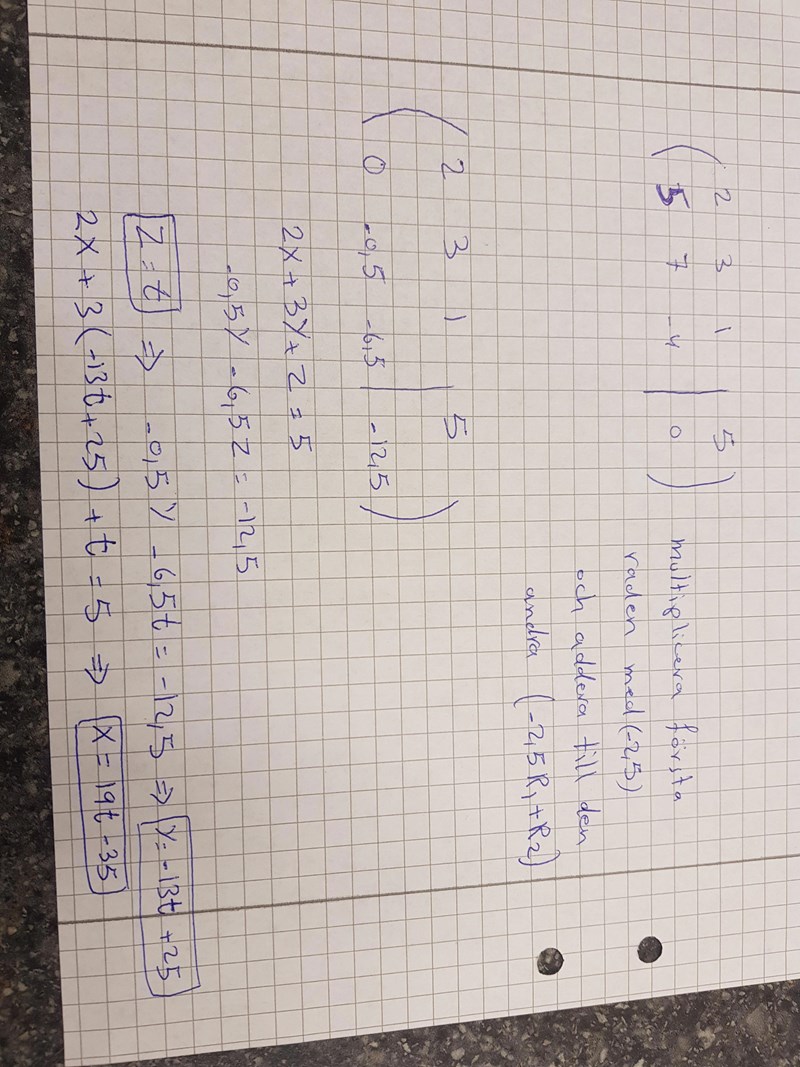 2 3 1 | 5
5 7 -4 | 0
multiplicera första
raden med (-2,5)
och addera till den
andra (-2,5R₁+R₂)
2 3 1 | 5
0 -0,5 -6,5 | -12,5
2x+3y+z=5
-0,5y-6,5z=-12,5
z=t ⇒ -0,5y-6,5t=-12,5 ⇒ y=-13t+25
2x+3(-13t+25)+t=5 ⇒ x=19t-35